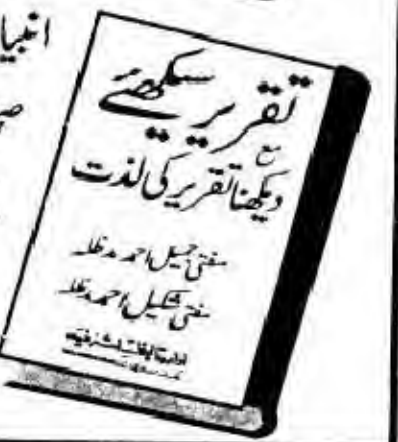 انبیا
تقریر سیکھئے
مع
دیکھنا تقریر کی لذت
مفتی جمیل احمد مدظلہ
مفتی شکیل احمد مدظلہ
ادارہ تالیفات اشرفیہ